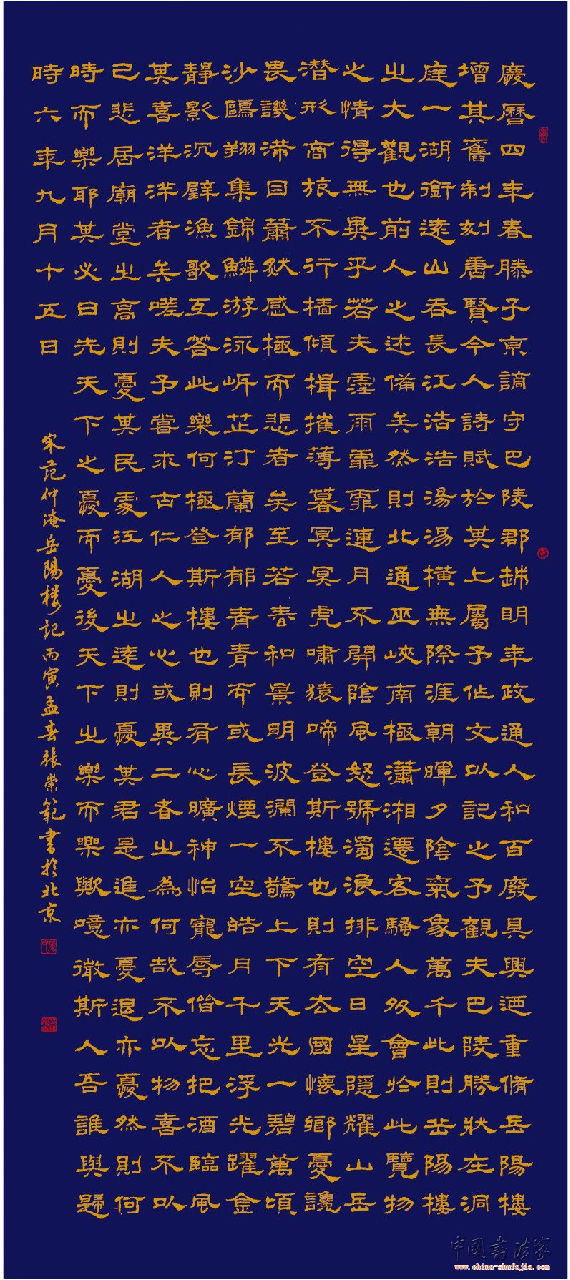 慶曆四年春滕子京謫守巴陵郡越明年政通人和百廢具興迺重脩岳陽樓
增其舊制刻唐賢今人詩賦於其上屬予作文以記之予觀夫巴陵勝狀在洞
庭一湖銜遠山吞長江浩浩湯湯橫無際涯朝暉夕陰氣象萬千此則岳陽樓
之大觀也前人之述備矣然則北通巫峽南極瀟湘遷客騷人多會於此覽物
之情得無異乎若夫霪雨霏霏連月不開陰風怒號濁浪排空日星隱耀山岳
潛形商旅不行檣傾楫摧薄暮冥冥虎嘯猿啼登斯樓也則有去國懷鄉憂讒
畏譏滿目蕭然感極而悲者矣至若春和景明波瀾不驚上下天光一碧萬頃
沙鷗翔集錦鱗游泳岸芷汀蘭郁郁青青而或長煙一空皓月千里浮光躍金
靜影沉璧漁歌互答此樂何極登斯樓也則有心曠神怡寵辱偕忘把酒臨風
其喜洋洋者矣嗟夫予嘗求古仁人之心或異二者之為何哉不以物喜不以
己悲居廟堂之高則憂其民處江湖之遠則憂其君是進亦憂退亦憂然則何
時而樂耶其必曰先天下之憂而憂後天下之樂而樂歟噫微斯人吾誰與歸
時六年九月十五日
宋范仲淹岳陽樓記丙寅孟春張崇範書於北京
中國書法家
www.china-shufajia.com